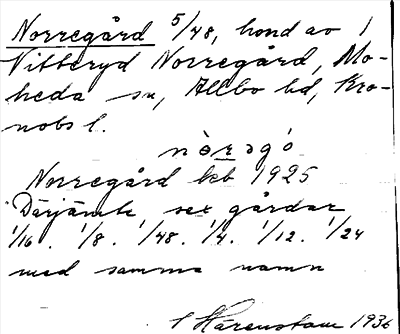 Norregård 5/48, hond av 1
Vitteryd Norregård, Mo-
heda sn, Allbo hd, Kro-
nobs l.
nòrəgó
Norregård kb 1925
Därjämte sex gårdar
1/16. 1/8. 1/48. 1/4. 1/12. 1/24
med samma namn
Härenstam 1936